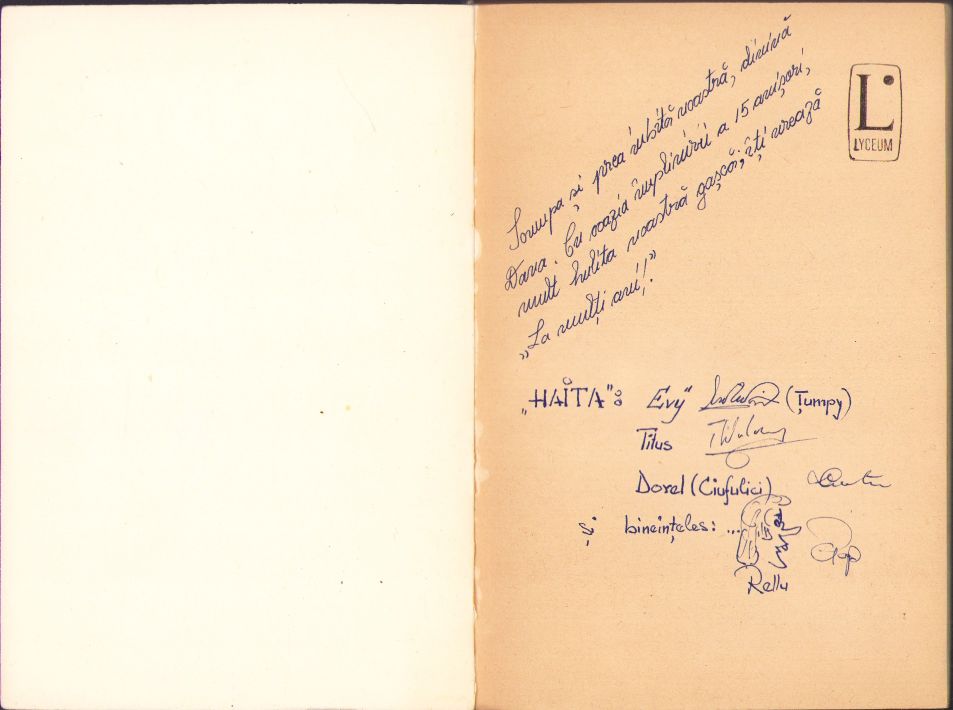 L
LYCEUM
Scumpa și prea iubită noastră, divină
Dana. Cu ocazia împlinirii a 15 anișori,
mult hulita noastră gașcă, îți urează
„La mulți ani!”
„HAITA”: Evy (Țumpy)
Titus
Dorel (Ciufulici)
și bineințeles: ...
Relly